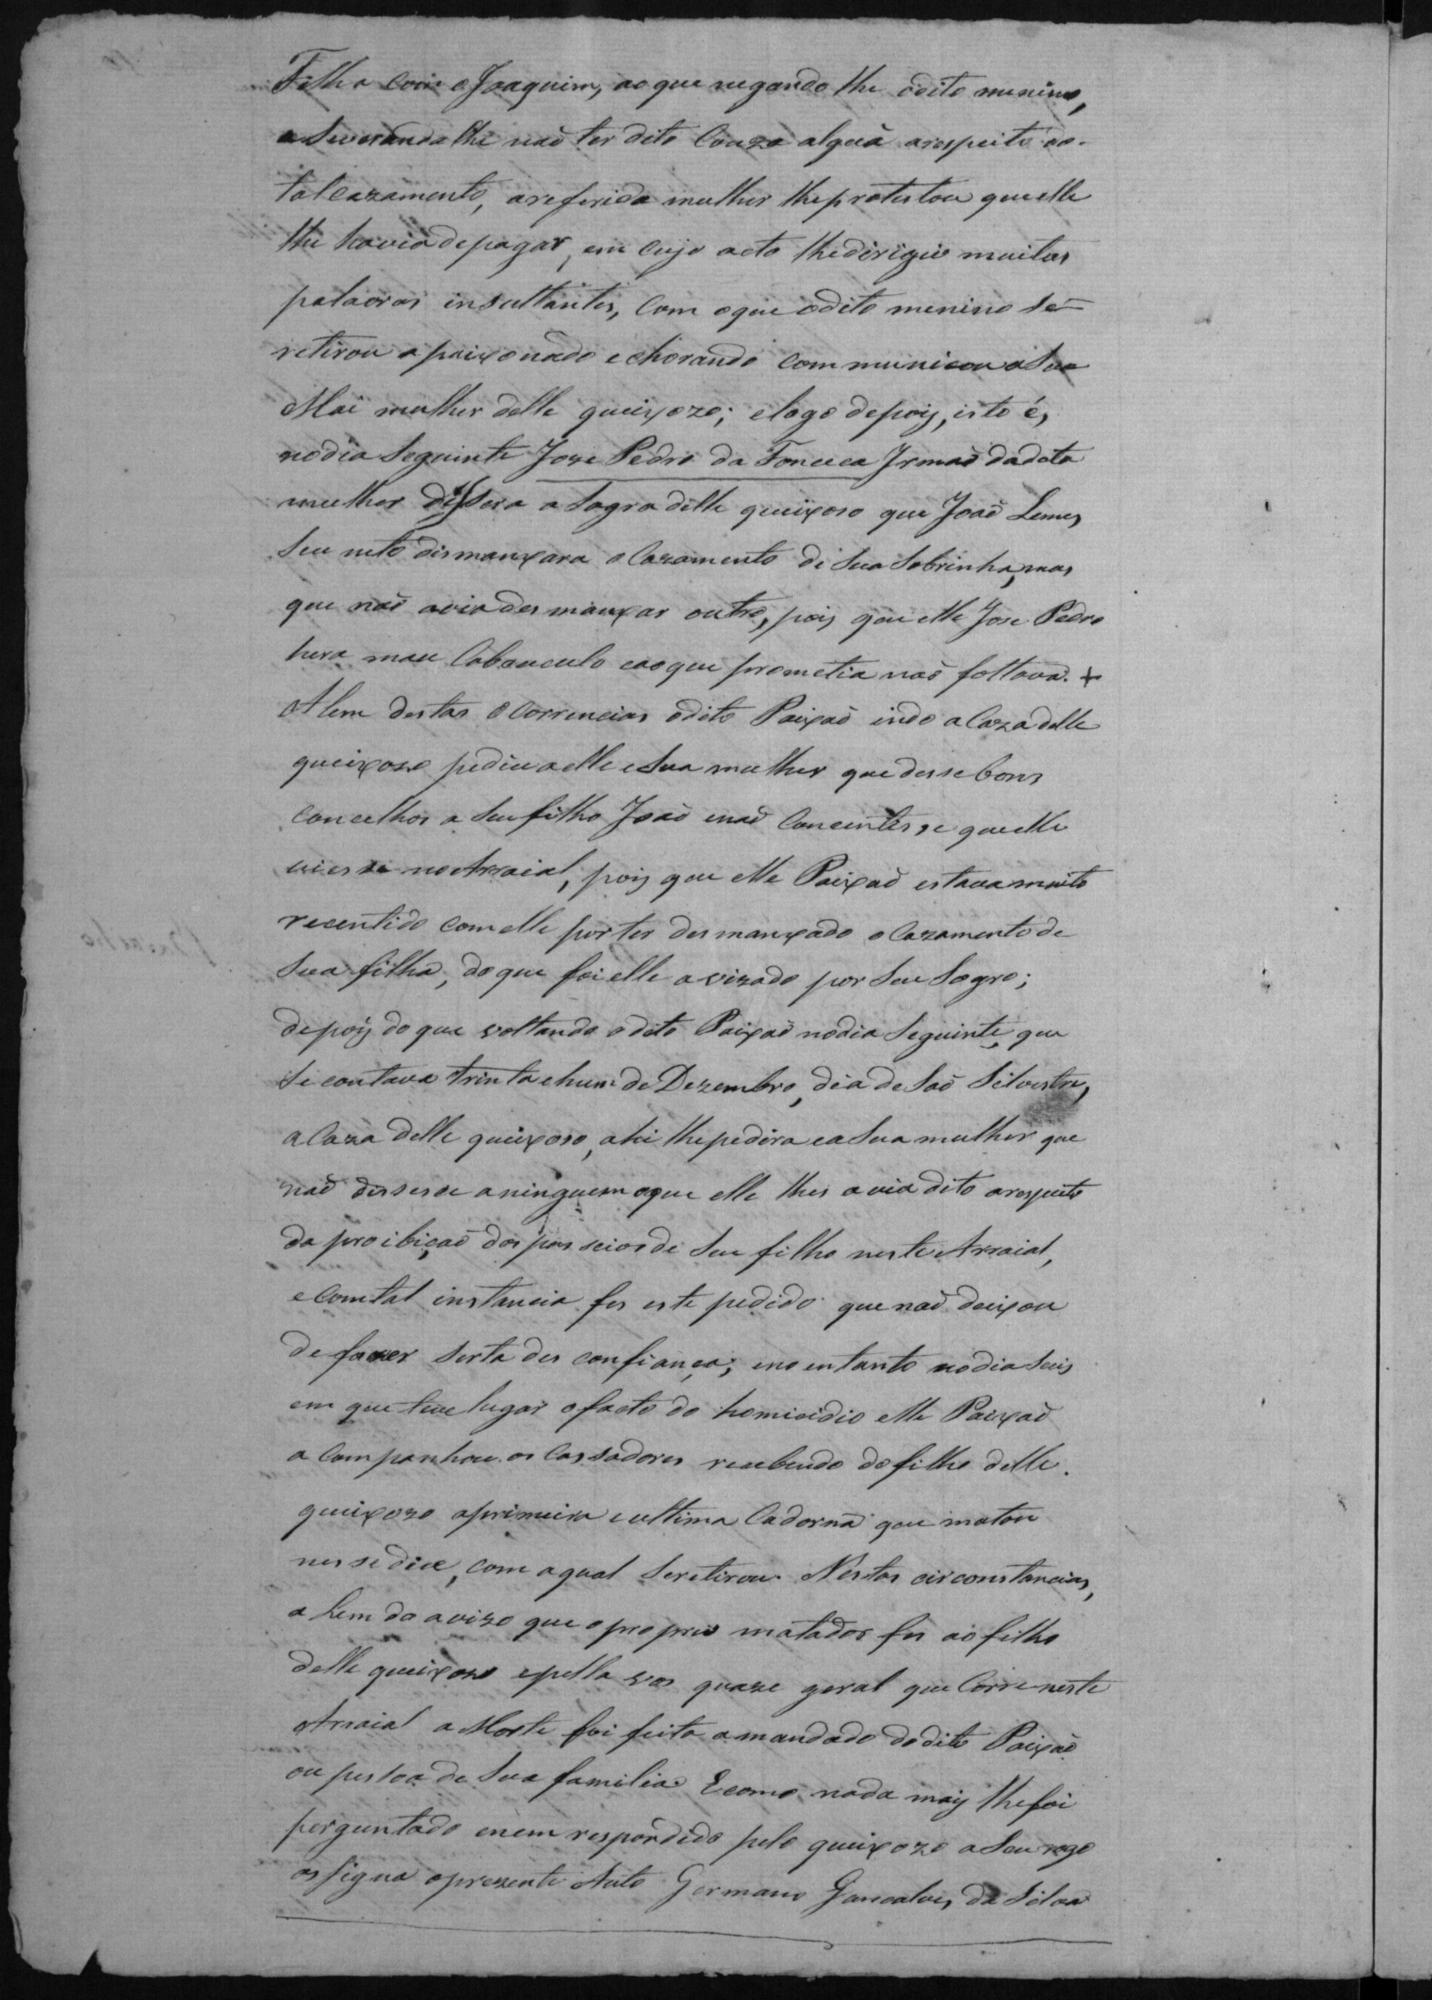 Filha com o Joaquim, ao que negando lhe o dito menino,
aseverandalhe naõ ter dito Couza algũa arespeito do
tal cazamento, a referida mulher lhe protestou que elle
lhe havia de pagar, em cujo acto lhe dirigio muitas
palavras insultantes, Com o que o dito menino se
retirou apaixonado e chorando communicou a Sua
Mai mulher delle queixozo; e logo depois, isto é,
no dia Seguinte Joze Pedro da Fonceca Irmaõ da dita
mulher dissera a Sogra delle queixoso que Joaõ Lemes
Seu neto dismanxara o Cazamento de Sua Sobrinha, mas
que naõ avia desmanxar outro, pois que elle Jose Pedro
hera mau Cabouculo e ao que prometia naõ faltava. +
Alem destas Ocorrencias o dito Paixaõ indo a Caza delle
queixozo pediu a elle e Sua mulher que desse bons
concelhos a Seu filho Joaõ e naõ Concentisse que elle
viesse no Arraial, pois que elle Paixaõ estava muito
recentido com elle por ter desmanxado o Cazamento de
Sua filha, do que foi elle avizado por Seu Sogro;
depois do que voltando o dito Paixaõ no dia Seguinte, que
Se contava trinta e hum de Dezembro, dia de Saõ Silvestre,
a Caza delle queixoso, ahi lhe pedira e a Sua mulher que
naõ dissesse a ninguem o que elle lhes avia dito arespeito
da proibiçaõ dos passeios de Seu filho neste Arraial,
e com tal instancia fes este pedido que naõ deixou
de fazer Serta desconfiança; e no entanto no dia Seis
em que teve lugar o facto do homicidio elle Paixaõ
acompanhou os Cassadores recebendo do filho delle
queixozo a primeira e ultima Cadorna que matou
nesse dia, com a qual Se retirou. Nestas circonstancias,
alem do avizo que o proprio matador fes ao filho
delle queixozo e pella vos quaze geral que Corre neste
Arraial a Morte foi feita a mandado do dito Paixaõ
ou pessoa de Sua familia. E como nada mais lhe foi
perguntado e nem respondido pelo queixozo a Seu rogo
assigna o prezente Auto Germano Goncalves da Silva